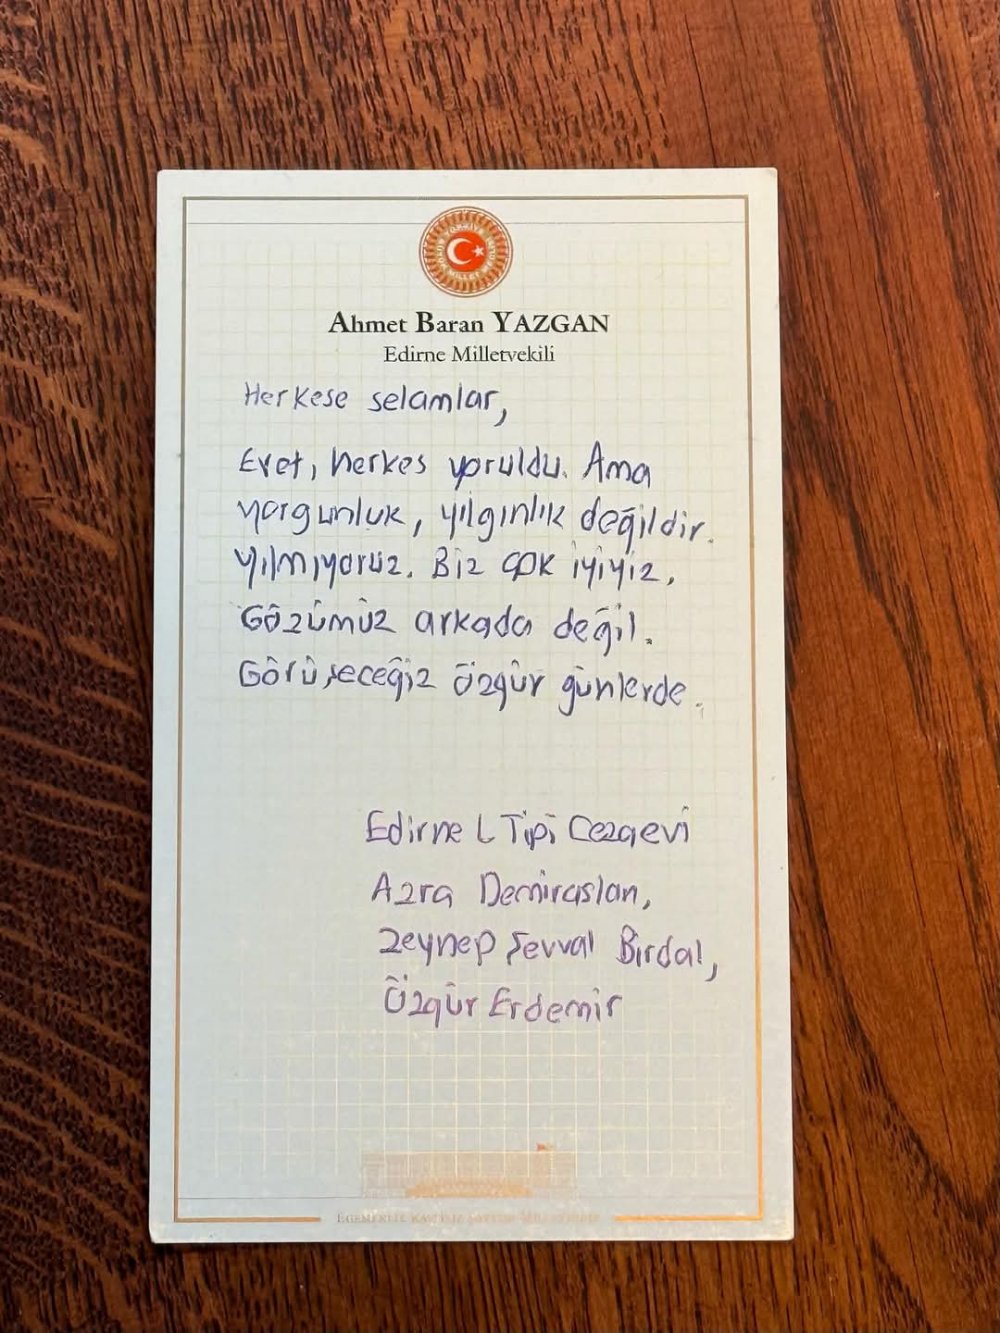 TÜRKİYE BÜYÜK MİLLET MECLİSİ
Ahmet Baran YAZGAN
Edirne Milletvekili
Herkese selamlar,
Evet, herkes yoruldu. Ama
yorgunluk, yılgınlık değildir.
Yılmıyoruz. Biz çok iyiyiz,
Gözümüz arkada değil.
Görüşeceğiz özgür günlerde.
Edirne L Tipi Cezaevi
Azra Demiraslan,
Zeynep Şevval Birdal,
Özgür Erdemir
EGEMENLİK KAYITSIZ ŞARTSIZ MİLLETİNDİR